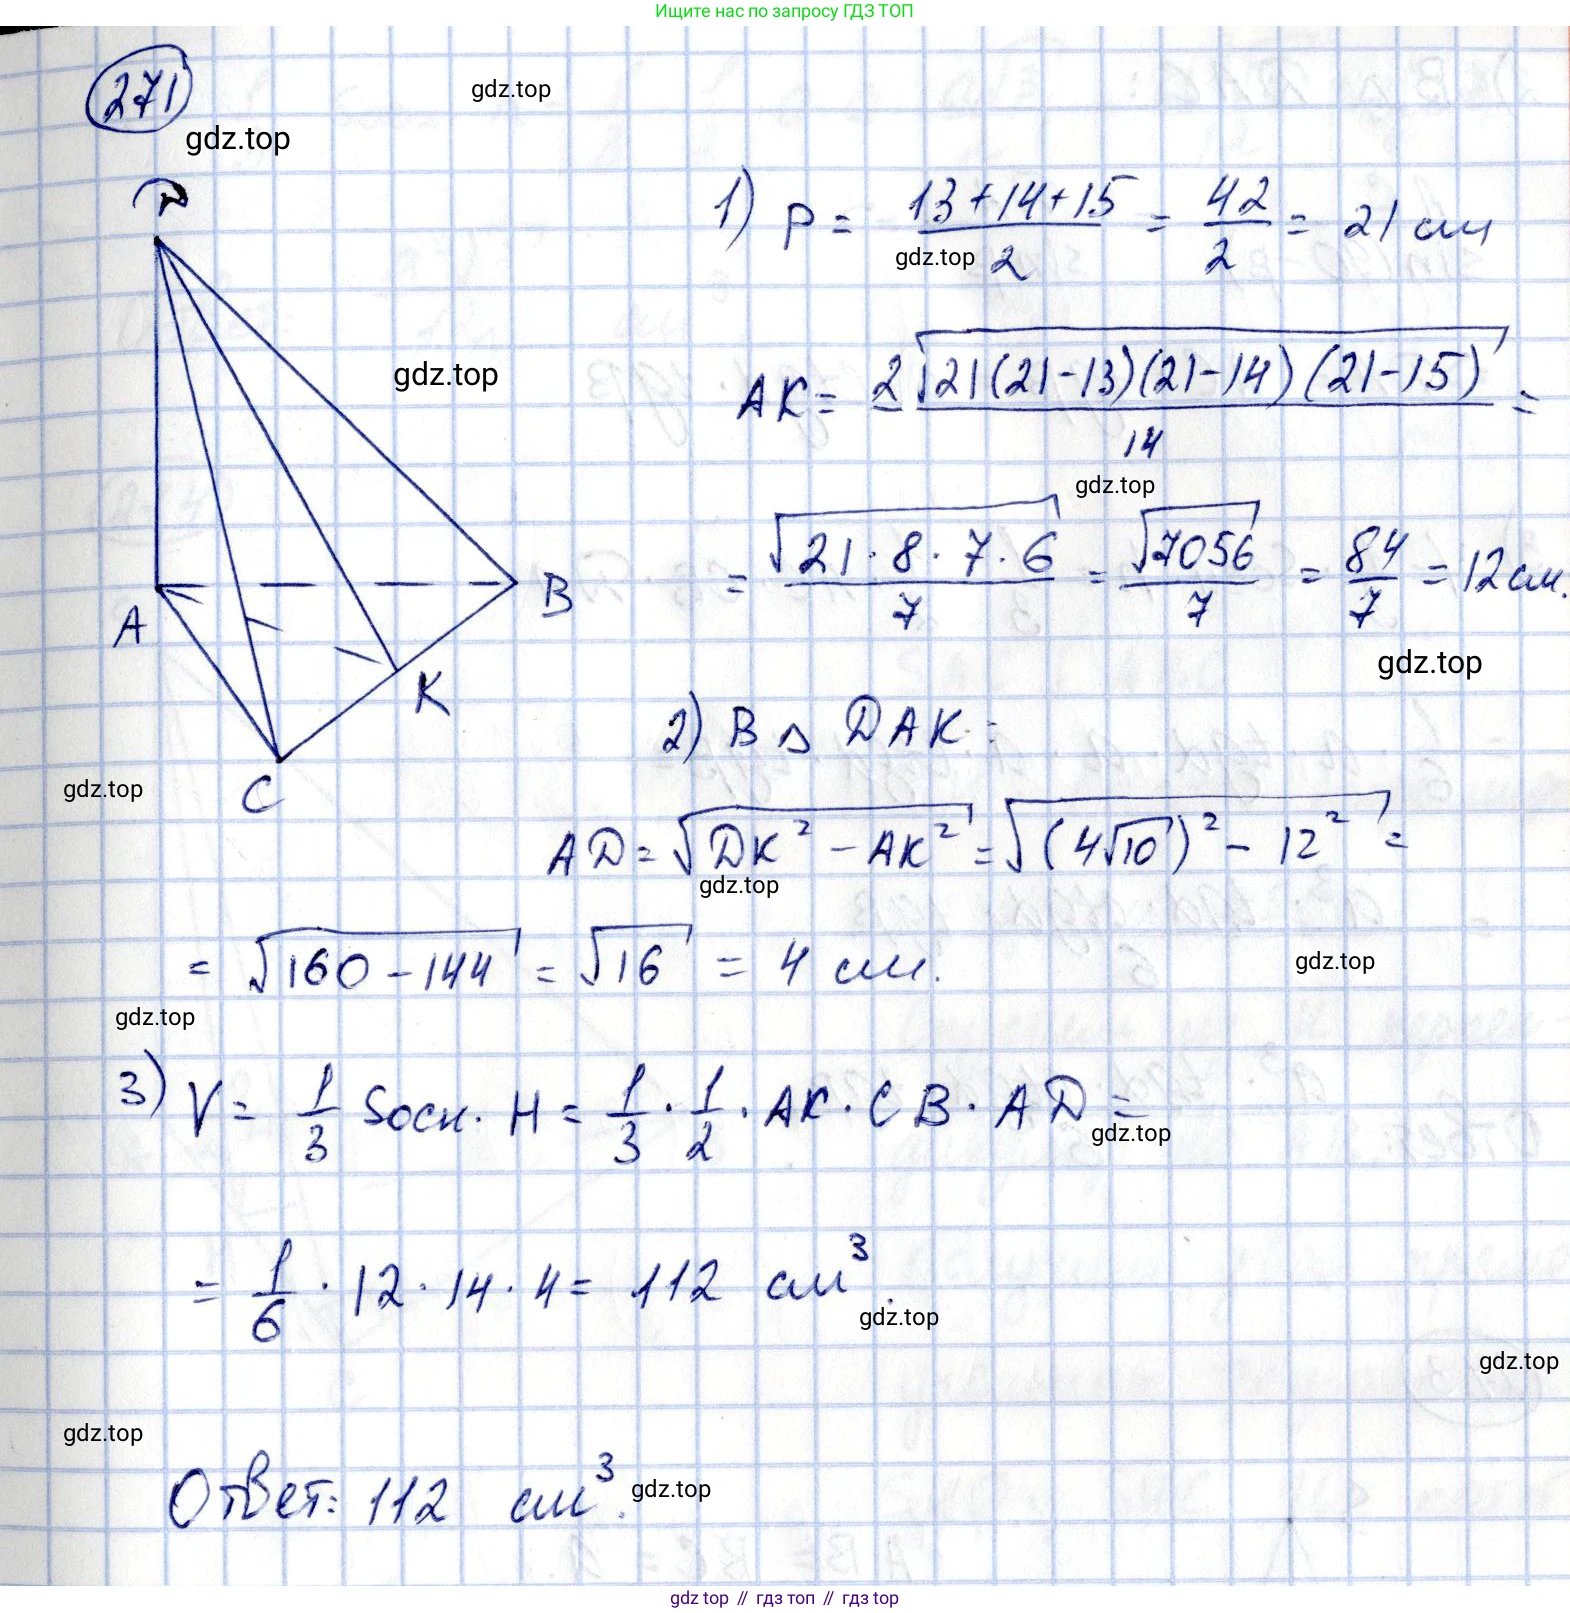 Ищите нас по запросу ГДЗ ТОП
271
gdz.top
gdz.top
D
1) p = (13+14+15)/2 = 42/2 = 21 см
gdz.top
gdz.top
AK = 2√(21(21-13)(21-14)(21-15))/14 =
gdz.top
= √(21·8·7·6)/7 = √7056/7 = 84/7 = 12 см.
A
B
K
C
gdz.top
gdz.top
2) В △ DAK:
AD = √(DK² - AK²) = √((4√10)² - 12²) =
gdz.top
= √(160-144) = √16 = 4 см.
gdz.top
gdz.top
3) V = 1/3 Sосн. H = 1/3 · 1/2 · AK · CB · AD =
gdz.top
= 1/6 · 12 · 14 · 4 = 112 см³.
gdz.top
gdz.top
gdz.top
Ответ: 112 см³.
gdz.top
gdz top // гдз топ // gdz top